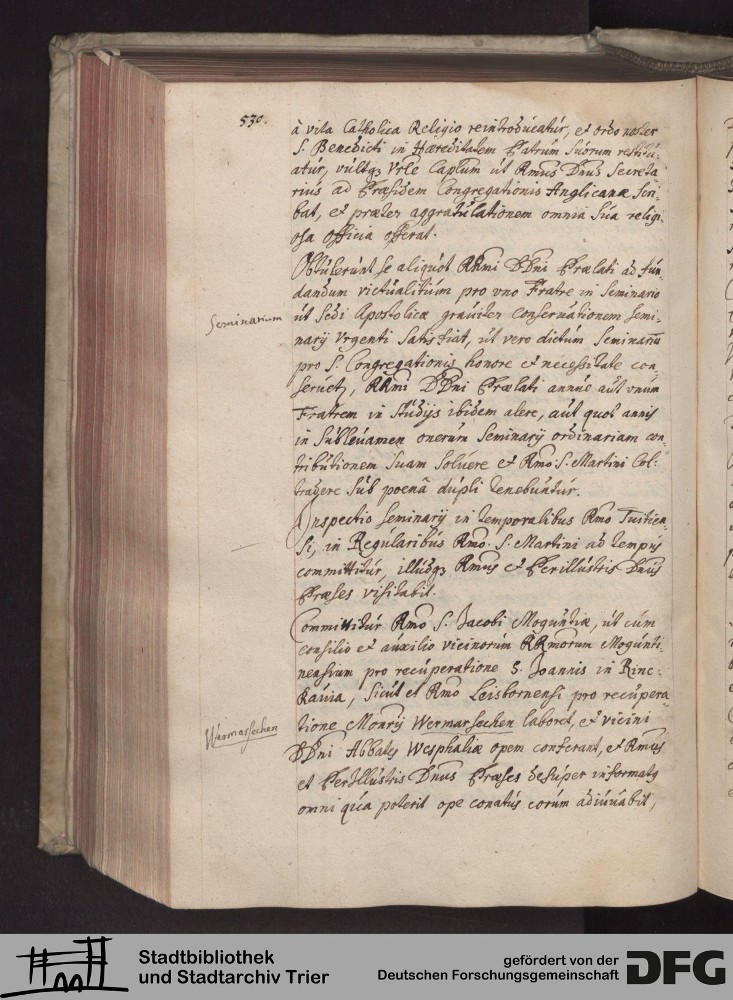 530.
à vita Catholica Religio reintroducatur, et ordo noster
S. Benedicti in Hæreditatem Patrum suorum restitu-
atur, vultqȝ Vrle Caplum ut Rmus Dnus Secreta
rius ad Præsidem Congregationis Anglicanæ scri-
bat, et præter aggratulationem omnia sua religi-
osa officia offerat.
Obtulerunt se aliquot RRmi DDni Prælati ad fun-
dandum victualitium pro uno Fratre in Seminario
Seminarium
ut Sedi Apostolicæ graviter conservationem Semi-
narij Vrgenti Satisfiat, ut vero dictum Seminariu
pro S. Congregationis honore et necessitate con-
servet, RRmi DDni Prælati annue aut unum
Fratrem in Studijs ibidem alere, aut quot annis
in Sublevamen onerum Seminarij ordinariam con-
tributionem suam solvere et Rmo S. Martini Col:
tradere sub poenâ dupli tenebuntur.
Inspectio Seminarij in temporalibus Rmo Tuitien-
si, in Regularibus Rmo S. Martini ad tempus
committitur, illudqȝ Rmus et Perillustris Dnus
Præses visitabit.
Committitur Rmo S. Jacobi Moguntiæ, ut cum
consilio et auxilio vicinorum RRmorum Mogunti-
nensium pro recuperatione S. Joannis in Rinc-
kavia, sicut et Rmo Leisbornensi pro recupera-
tione Monrij Wermarsechen laboret, et vicini
Wermarsechen
DDni Abbates Wesphaliæ opem conferant, et Rmus
et Perillustris Dnus Præses desuper informatq
omni qua poterit ope conatus eorum adiuvabit,
Stadtbibliothek
und Stadtarchiv Trier
gefördert von der
Deutschen Forschungsgemeinschaft
DFG